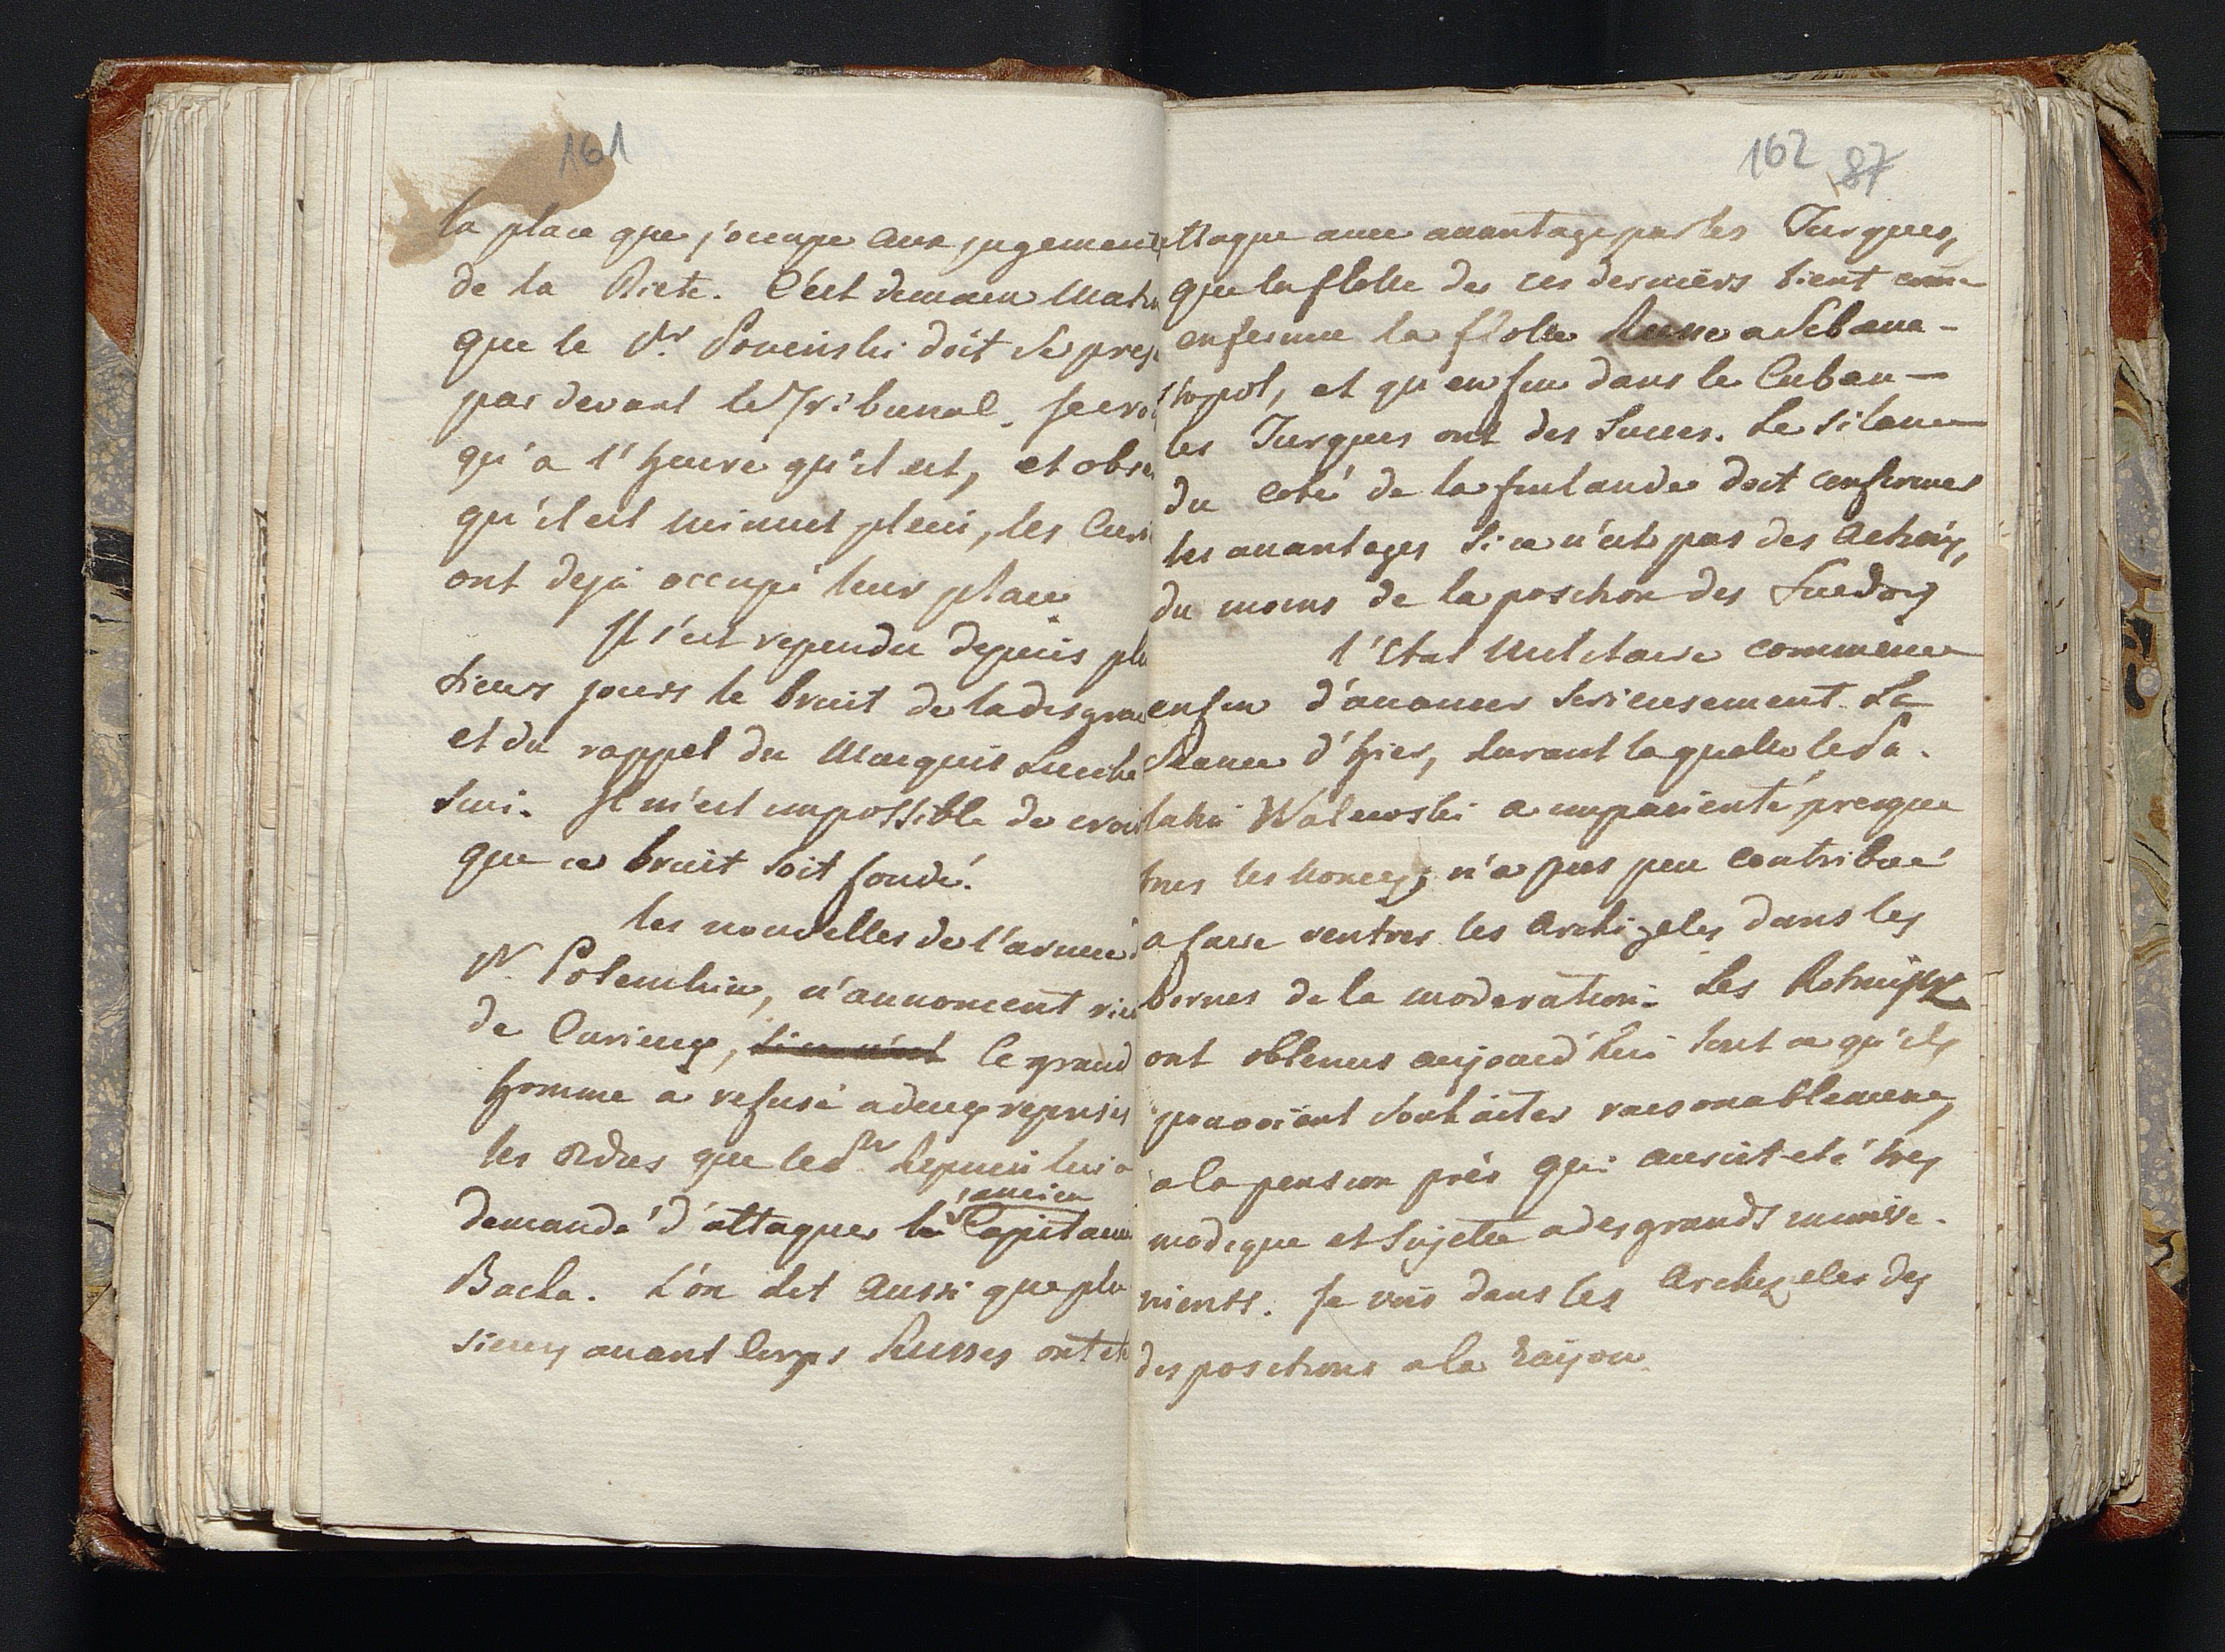 161
la place que j'occupe aux jugements
de la Diete. C'est demain matin
que le Pr. Poninski doit se pres
par devant le Tribunal. Je croi
qu'a l'heure qu'il est, et obse
qu'il est minuit plein, les Curi
ont deja occupé leur place
Il s'est rependu depuis plu
sieurs jours le bruit de la disgrace
et du rappel du Marquis Lucche
sini. Il m'est impossible de croi
que ce bruit soit fondé.
les nouvelles de l'armée d
Pr. Potemkin, n'annoncent rien
de Curieux, si ce n'est le grand
homme a refusé a deux reprises
les Ordres que le Pr. Repnin lui a
l'ancien
demandé d'attaquer le Capitane
Bacha. L'on dit aussi que plu
sieurs avant Corps Russes ont été
162 87
attaqué avec avantage par les Turques,
que la flotte des ces derniers tient comme
enfermée la flotte Russe a Sebana-
stopol, et qu'enfin dans le Cuban
les Turques ont des Succes. Le silence
du coté de la finlande doit confirmer
les avantages si ce n'est pas des Actions,
du moins de la position des Suedois
l'Etat Militaire commence
enfin d'avancer serieusement. La
Seance d'hier, durant laquelle le Pa-
latin Walewski a impatienté presque
tous les nonces, n'a pas peu contribué
a faire rentrer les Archizeles dans les
bornes de la moderation. Les
ont obtenus aujourd'hui tout ce qu'ils
pouvoient souhaiter raisonablement,
a la pension près qui auroit eté très
modique et sujette a des grands inconve-
nients. Je vois dans les Archizeles des
dispositions a la raison.